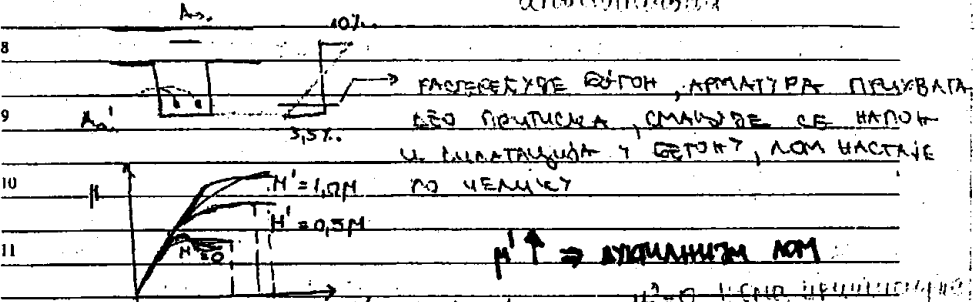 8
9
10
11
As.
10‰
As'
3,5‰
РАСТЕРЕЋУЈЕ БЕТОН, АРМАТУРА ПРИХВАТА
ДЕО ПРИТИСКА, СМАЊУЈЕ СЕ НАПОН
И ДИЛАТАЦИЈА У БЕТОНУ, ЛОМ НАСТАЈЕ
ПО ЧЕЛИКУ
μ
μ'=1,0μ
μ'=0,5μ
μ'=0
μ'↑ ⇒ ДУКТИЛНИЈИ ЛОМ
μ'=0